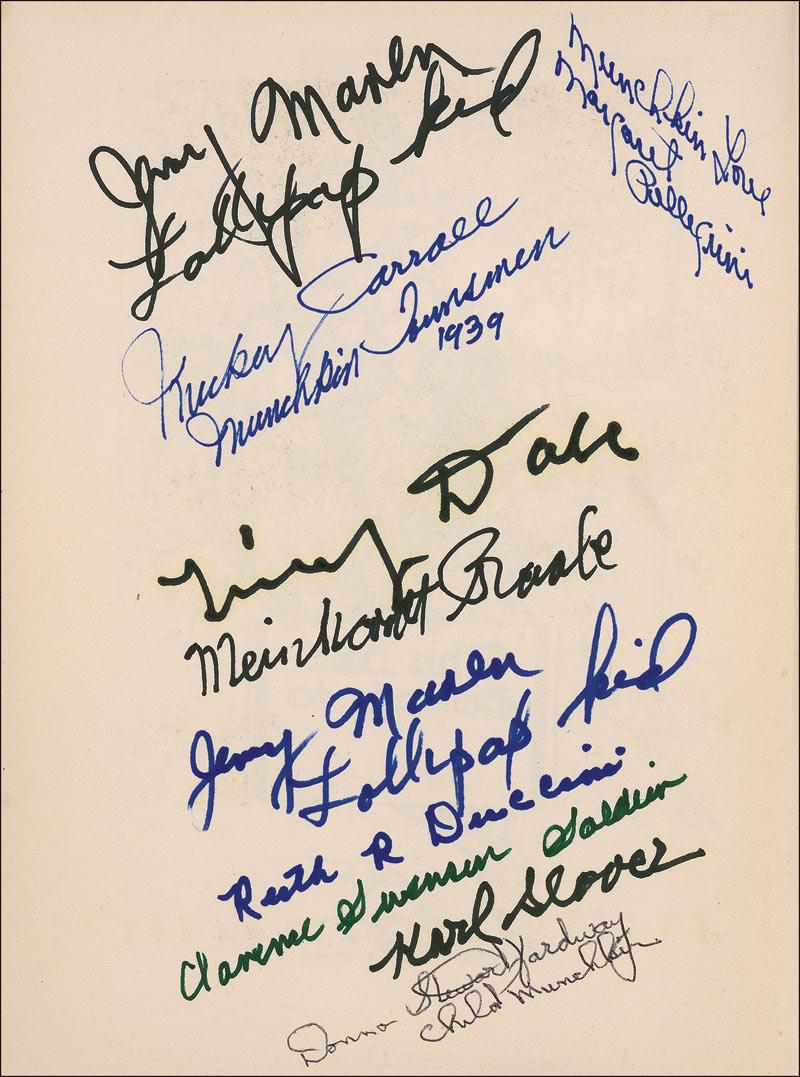 Jerry Maren
Lollypop kid
Munchkin Love
Margaret
Pellegrini
Mickey Carroll
Munchkin Townsmen
1939
Dale
Meinhardt Raabe
Jerry Maren
Lollypop kid
Ruth R Duccini
Clarence Swensen Soldier
Karl Slover
Donna Stewart Hardway
Child Munchkin